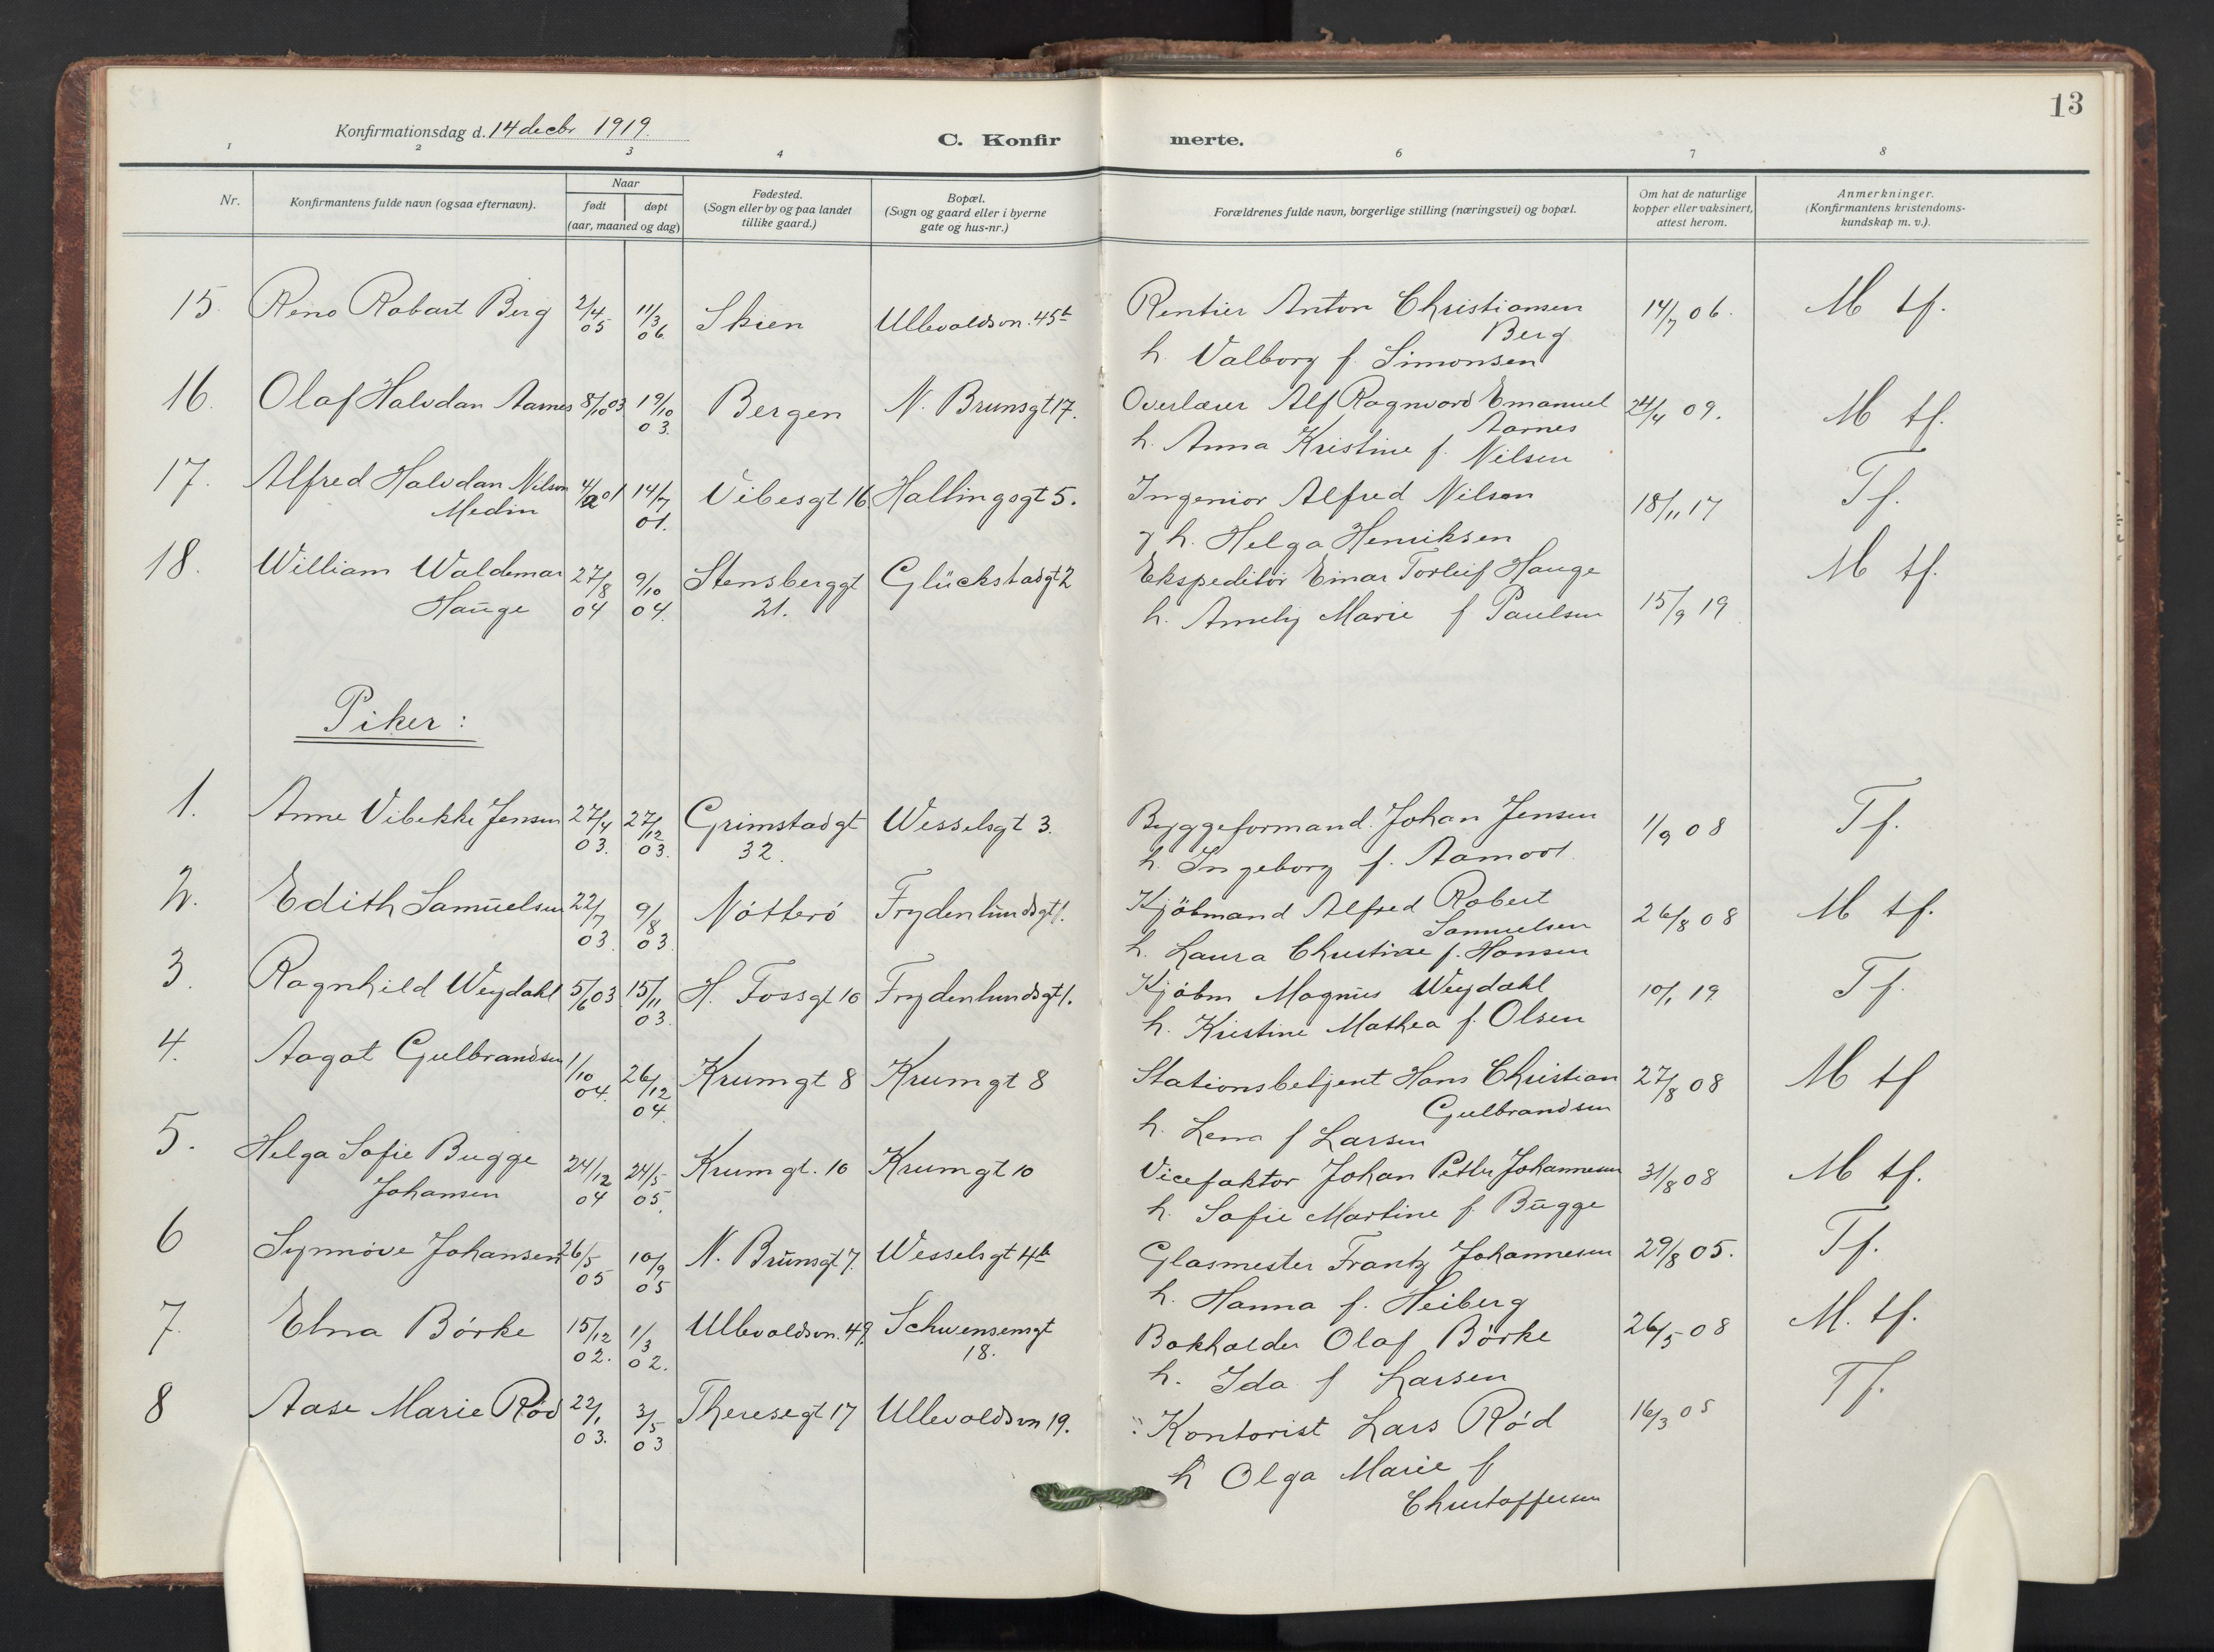 13
Konfirmationsdag d. 14 decbr 1919.
C. Konfir merte.
1 2 3 4 6 7 8
Nr.
Konfirmantens fulde navn (ogsaa efternavn).
Naar
født døpt
(aar, maaned og dag)
Fødested.
(Sogn eller by og paa landet
tillike gaard.)
Bopæl.
(Sogn og gaard eller i byerne
gate og hus-nr.)
Forældrenes fulde navn, borgerlige stilling (næringsvei) og bopæl.
Om hat de naturlige
kopper eller vaksinert,
attest herom.
Anmerkninger.
(Konfirmantens kristendoms-
kundskap m. v.).
15. Reno Robart Berg 2/4 05 11/3 06. Skien Ullevoldsvn. 45b Rentier Anton Christiansen 14/7 06. M tf.
Berg
h. Valborg f. Simonsen
16. Olaf Halvdan Aarnes 8/10 03 19/10 03. Bergen N. Brunsgt 17. Overlærer Alf Ragnvard Emanuel 24/4 09. M tf.
Aarnes
h. Anna Kristine f. Nilsen
17. Alfred Halvdan Nilsen 4/2 01 14/7 01. Vibesgt 16. Hallingsgt 5. Ingeniør Alfred Nilsen 18/11 17 Tf.
Medin
h. Helga Henriksen
18. William Waldemar 27/8 04 9/10 04. Stensberggt Glückstadgt 2 Ekspeditör Einar Torleif Hauge M tf.
Hauge 21. h. Amely Marie f Paulsen 15/9 19
Piker:
1. Anne Vibekke Jensen 27/4 03. 27/12 03. Grimstadgt Wesselsgt 3. Byggeformand Johan Jensen 1/9 08 Tf.
32. h. Ingeborg f. Aamodt.
2. Edith Samuelsen 22/7 03. 9/8 03. Nötterö Frydenlundsgt 1. Kjöbmand Alfred Robert 26/8 08 M tf.
Samuelsen
h. Laura Christine f. Hansen
3. Ragnhild Weydahl 5/6 03 15/11 03. H. Fossgt 10 Frydenlundsgt 1. Kjöbm Magnus Weydahl 10/1 19 Tf.
h. Kristine Mathea f. Olsen
4. Aagot Gulbrandsen 1/10 04. 26/12 04. Krumgt 8 Krumgt 8 Stationsbetjent Hans Christian 27/8 08 M tf
Gulbrandsen
h. Lena f Larsen
5. Helga Sofie Bugge 24/12 04 24/5 05. Krumgt. 10 Krumgt 10 Vicefaktor Johan Petter Johannesen 31/8 08 M tf.
Johansen h. Sofie Martine f. Bugge
6 Synnöve Johansen 26/5 05 10/9 05 N. Brunsgt 7. Wesselsgt 4b Glasmester Frantz Johannesen 29/8 05. Tf.
h. Hanna f. Heiberg
7. Elna Börke 15/12 02. 1/3 02. Ullevoldsvn. 49. Schwensensgt Bokholder Olaf Börke 26/5 08 M. tf.
18. h. Ida f Larsen
8 Aase Marie Röd 22/1 03. 3/5 03 Theresegt 17 Ullevoldsvn 19. Kontorist Lars Röd 16/3 05 Tf.
h Olga Marie f
Christoffersen